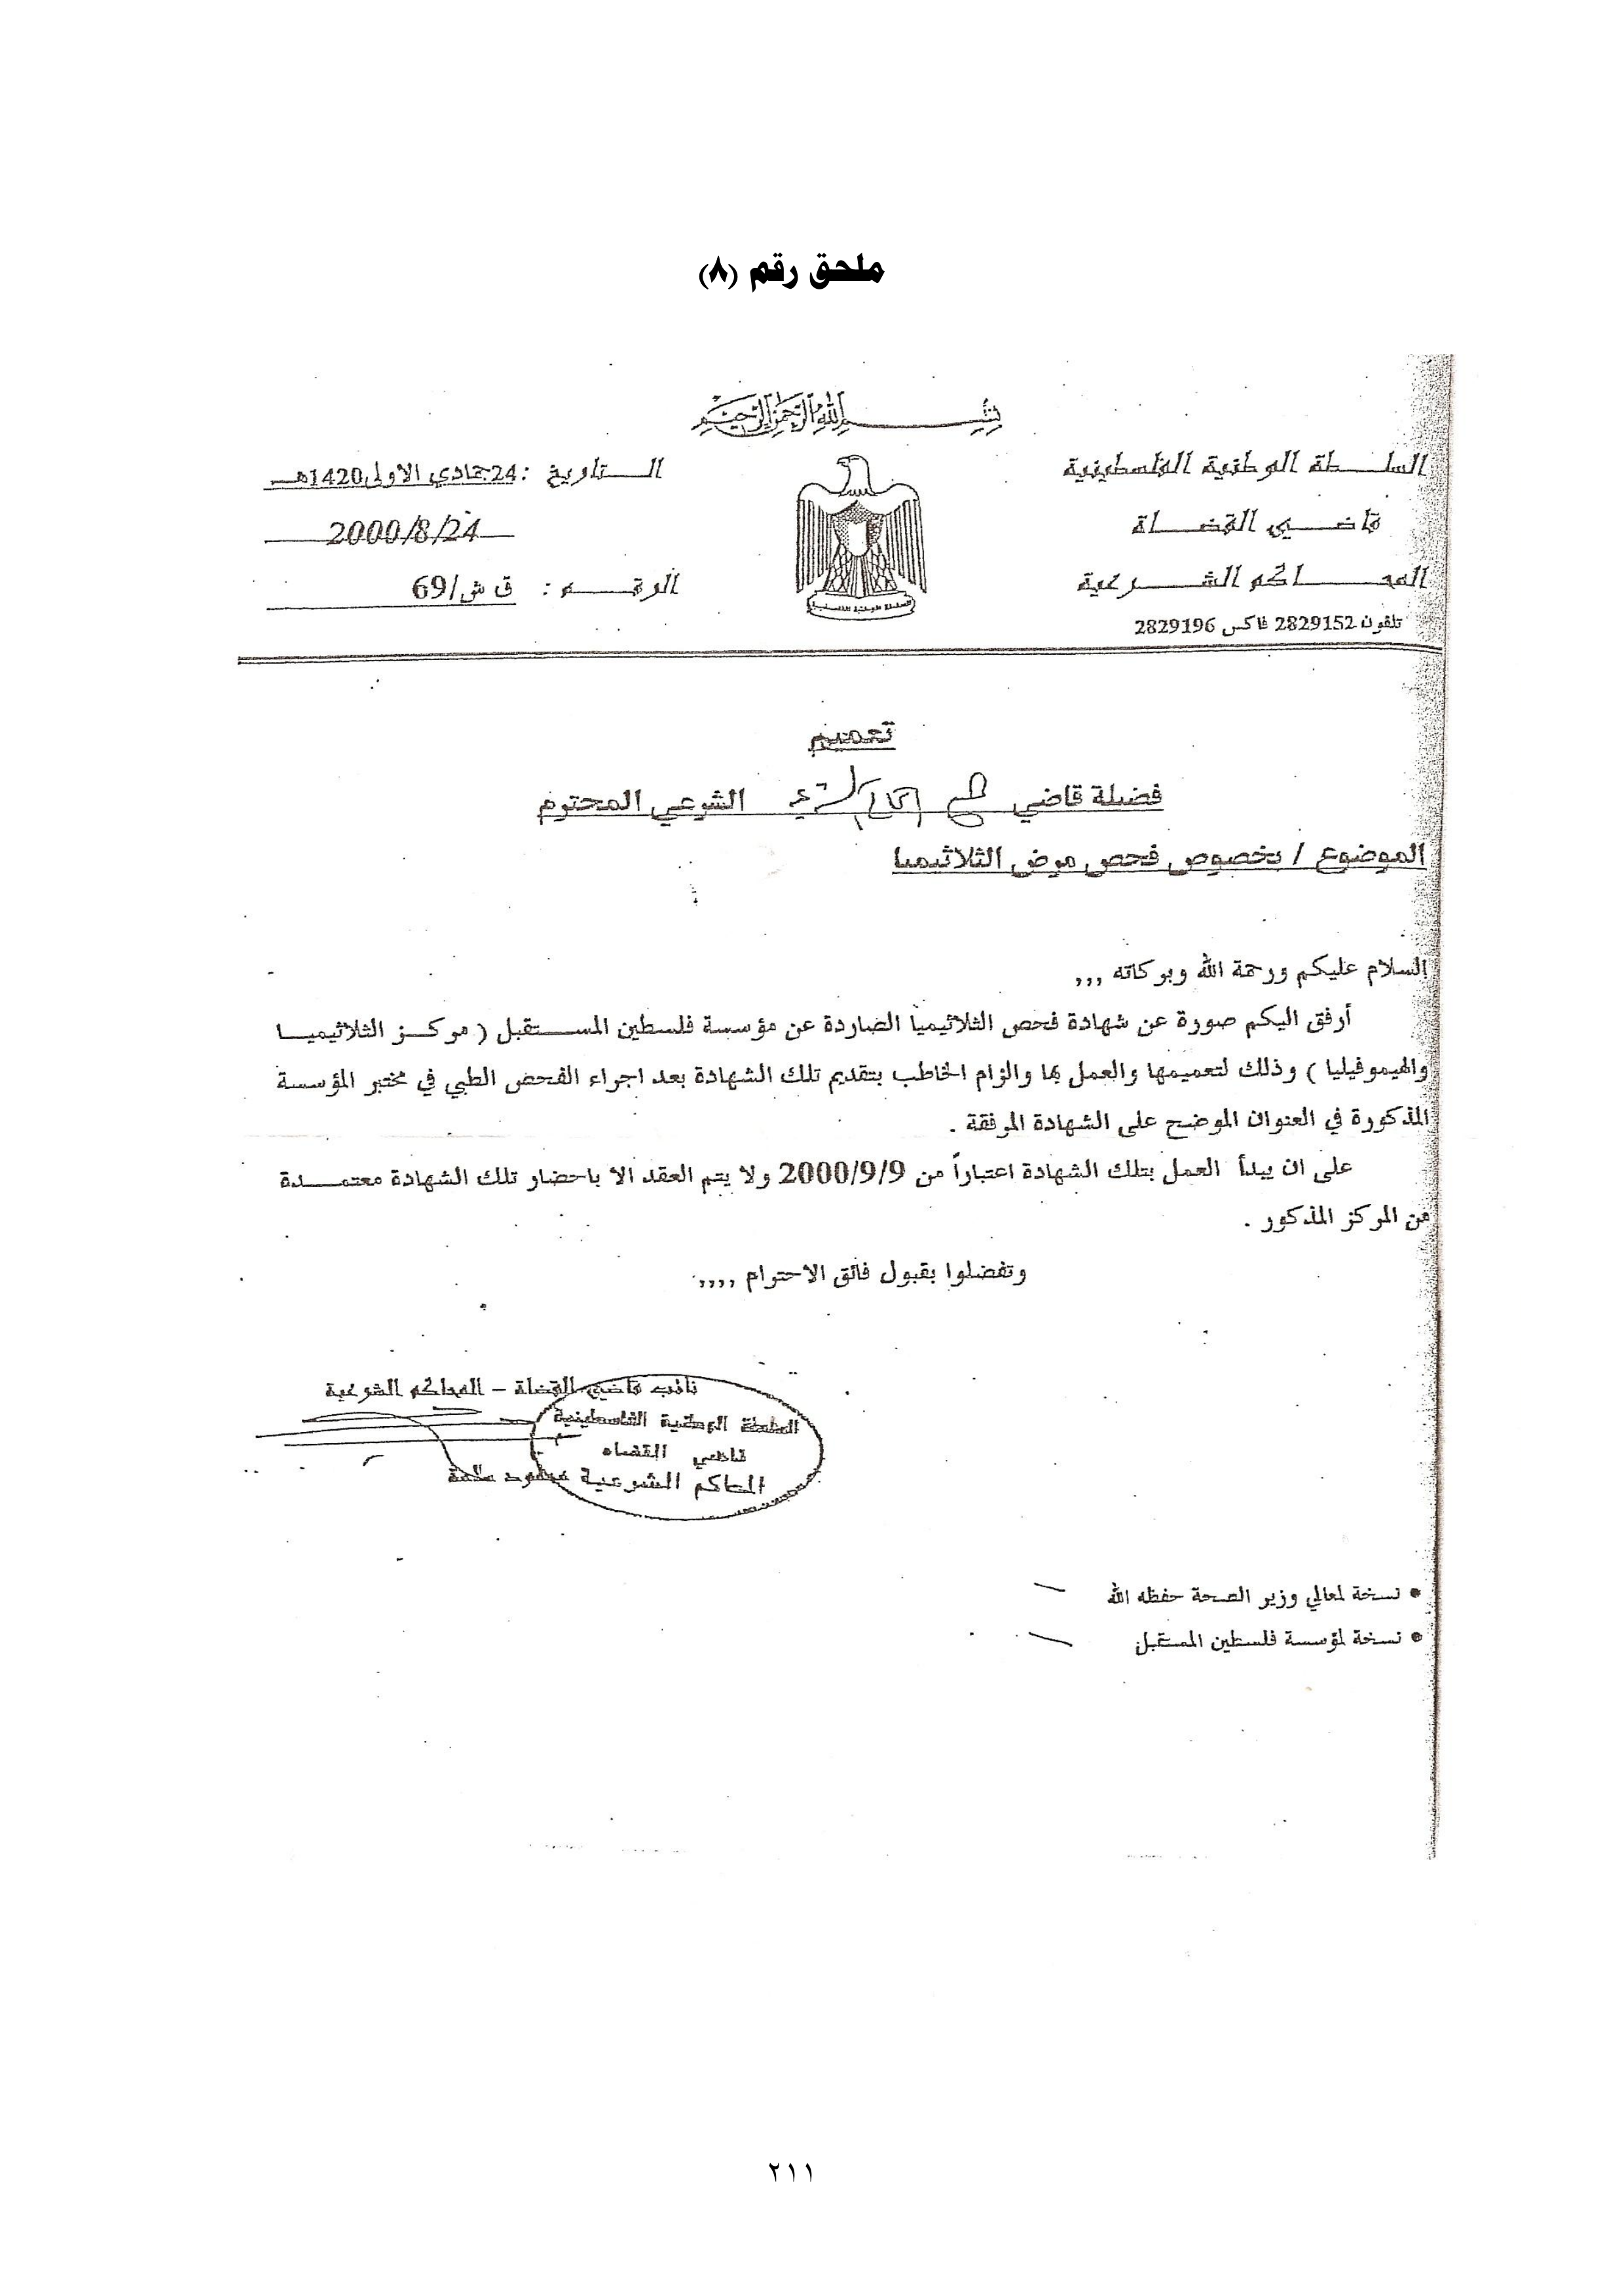 ملحق رقم (٨)
بسم الله الرحمن الرحيم
السلطة الوطنية الفلسطينية
قاضي القضاة
المحاكم الشرعية
تلفون 2829152 فاكس 2829196
التاريخ : 24جمادي الاولى1420هـ
2000/8/24
الرقم : ق ش/69
السلطة الوطنية الفلسطينية
تعميم
فضيلة قاضي الشرعي المحترم
الموضوع / بخصوص فحص مرض الثلاثيميا
السلام عليكم ورحمة الله وبركاته ,,,
أرفق اليكم صورة عن شهادة فحص الثلاثيميا الصاردة عن مؤسسة فلسطين المستقبل ( مركز الثلاثيميا
والهيموفيليا ) وذلك لتعميمها والعمل بها والزام الخاطب بتقديم تلك الشهادة بعد اجراء الفحص الطبي في مختبر المؤسسة
المذكورة في العنوان الموضح على الشهادة المرفقة .
على ان يبدأ العمل بتلك الشهادة اعتباراً من 2000/9/9 ولا يتم العقد الا باحضار تلك الشهادة معتمدة
من المركز المذكور .
وتفضلوا بقبول فائق الاحترام ,,,,
نائب قاضي القضاة – المحاكم الشرعية
السلطة الوطنية الفلسطينية
قاضي القضاه
المحاكم الشرعية
محمود سلامة
• نسخة لمعالي وزير الصحة حفظه الله
• نسخة لمؤسسة فلسطين المستقبل
٢١١